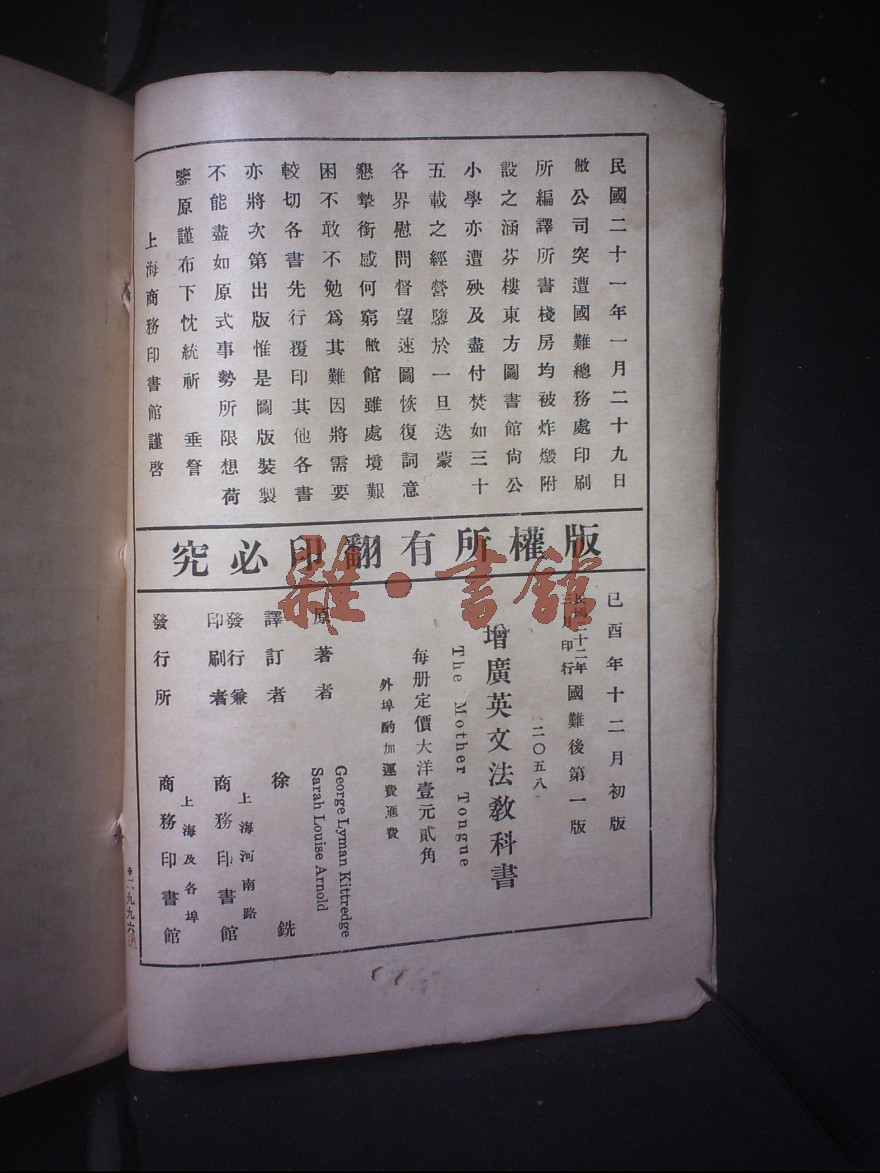 民國二十一年一月二十九日
敝公司突遭國難總務處印刷
所編譯所書棧房均被炸燬附
設之涵芬樓東方圖書館尙公
小學亦遭殃及盡付焚如三十
五載之經營隳於一旦迭蒙
各界慰問督望速圖恢復詞意
懇摯銜感何窮敝館雖處境艱
困不敢不勉爲其難因將需要
較切各書先行覆印其他各書
亦將次第出版惟是圖版裝製
不能盡如原式事勢所限想荷
鑒原謹布下忱統祈 垂詧
上海商務印書館謹啓
版權所有翻印必究
己酉年十二月初版
民國二十二年三月印行國難後第一版
二〇五八
增廣英文法教科書
The Mother Tongue
每册定價大洋壹元貳角
外埠酌加運費匯費
原著者 George Lyman Kittredge
Sarah Louise Arnold
譯訂者 徐銑
發行兼印刷者 上海河南路
商務印書館
發行所 上海及各埠
商務印書館
二九九六
雜·書館